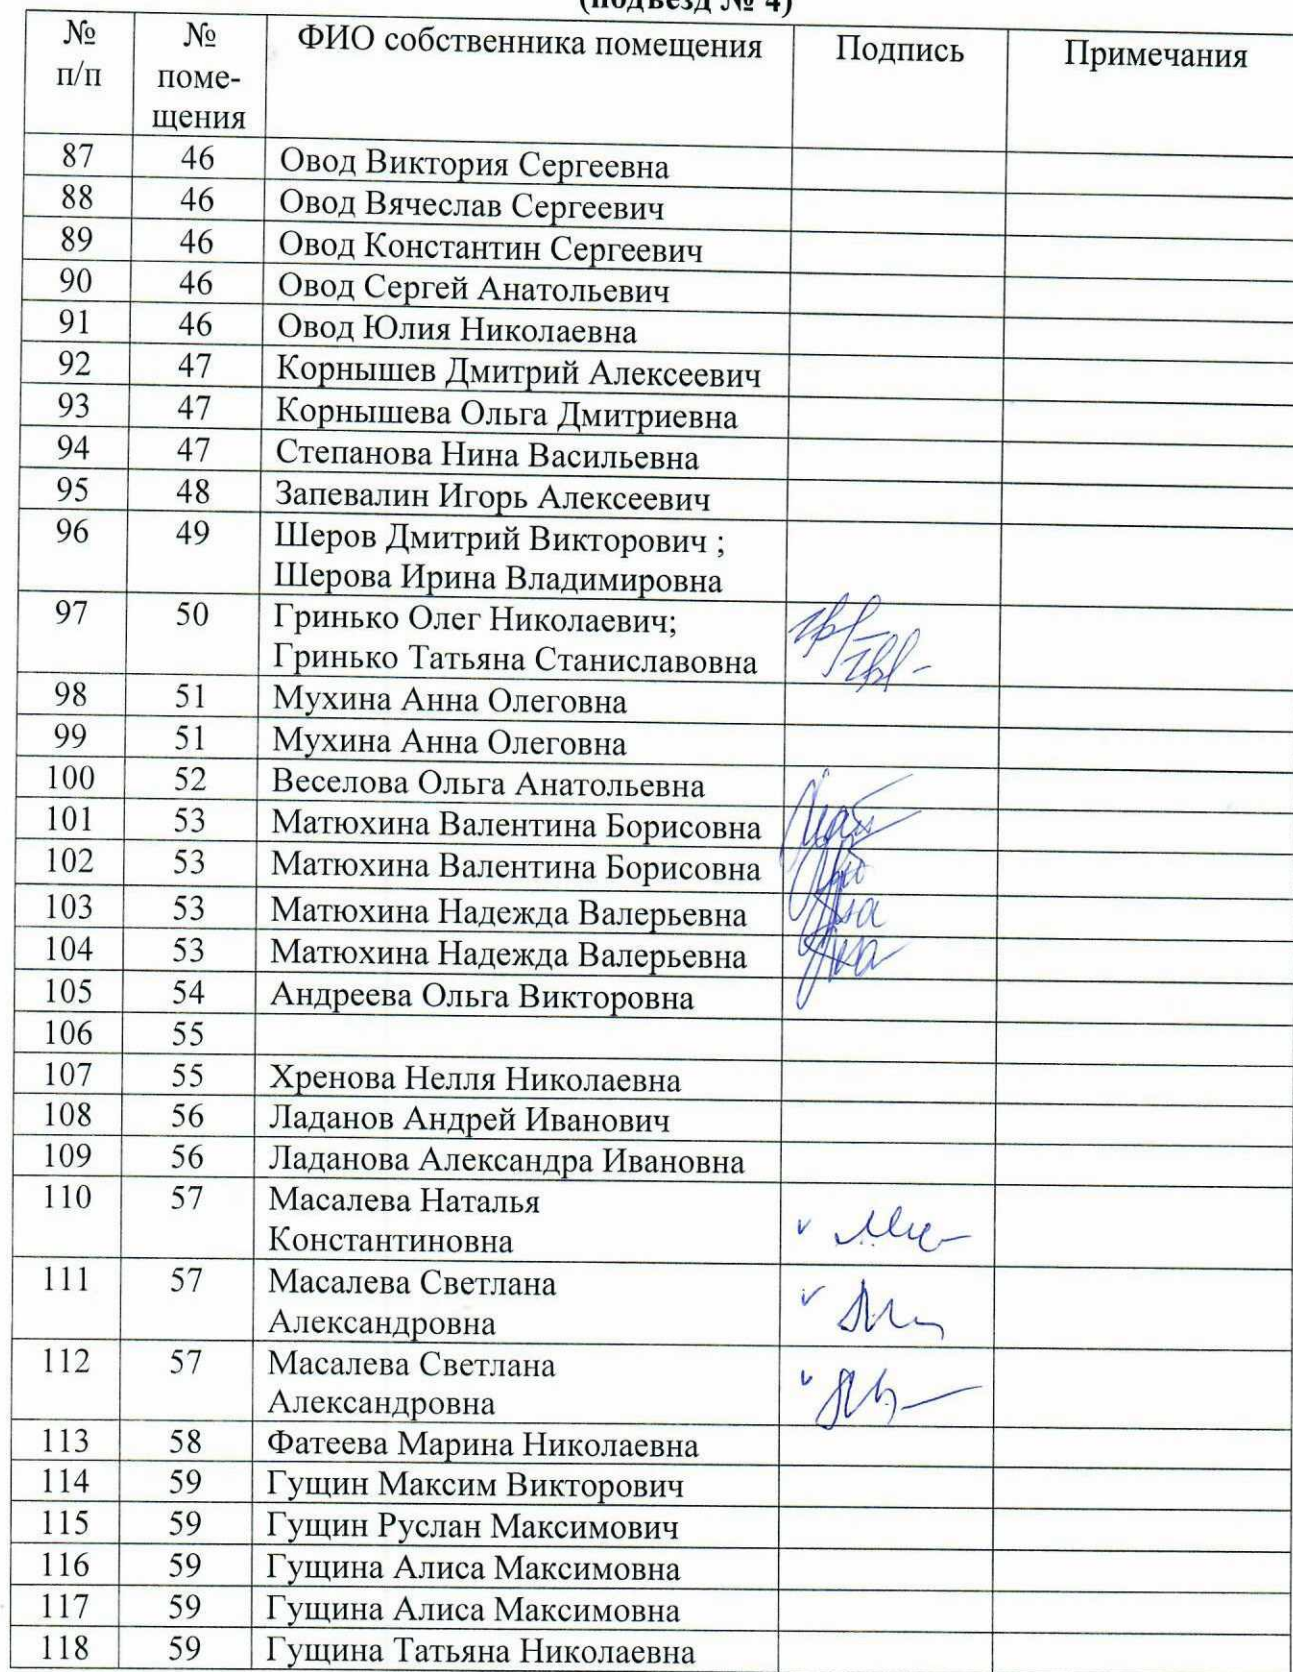 (подъезд № 4)
№ п/п № поме-щения ФИО собственника помещения Подпись Примечания
87 46 Овод Виктория Сергеевна
88 46 Овод Вячеслав Сергеевич
89 46 Овод Константин Сергеевич
90 46 Овод Сергей Анатольевич
91 46 Овод Юлия Николаевна
92 47 Корнышев Дмитрий Алексеевич
93 47 Корнышева Ольга Дмитриевна
94 47 Степанова Нина Васильевна
95 48 Запевалин Игорь Алексеевич
96 49 Шеров Дмитрий Викторович ;
Шерова Ирина Владимировна
97 50 Гринько Олег Николаевич;
Гринько Татьяна Станиславовна
98 51 Мухина Анна Олеговна
99 51 Мухина Анна Олеговна
100 52 Веселова Ольга Анатольевна
101 53 Матюхина Валентина Борисовна
102 53 Матюхина Валентина Борисовна
103 53 Матюхина Надежда Валерьевна
104 53 Матюхина Надежда Валерьевна
105 54 Андреева Ольга Викторовна
106 55
107 55 Хренова Нелля Николаевна
108 56 Ладанов Андрей Иванович
109 56 Ладанова Александра Ивановна
110 57 Масалева Наталья
Константиновна
111 57 Масалева Светлана
Александровна
112 57 Масалева Светлана
Александровна
113 58 Фатеева Марина Николаевна
114 59 Гущин Максим Викторович
115 59 Гущин Руслан Максимович
116 59 Гущина Алиса Максимовна
117 59 Гущина Алиса Максимовна
118 59 Гущина Татьяна Николаевна